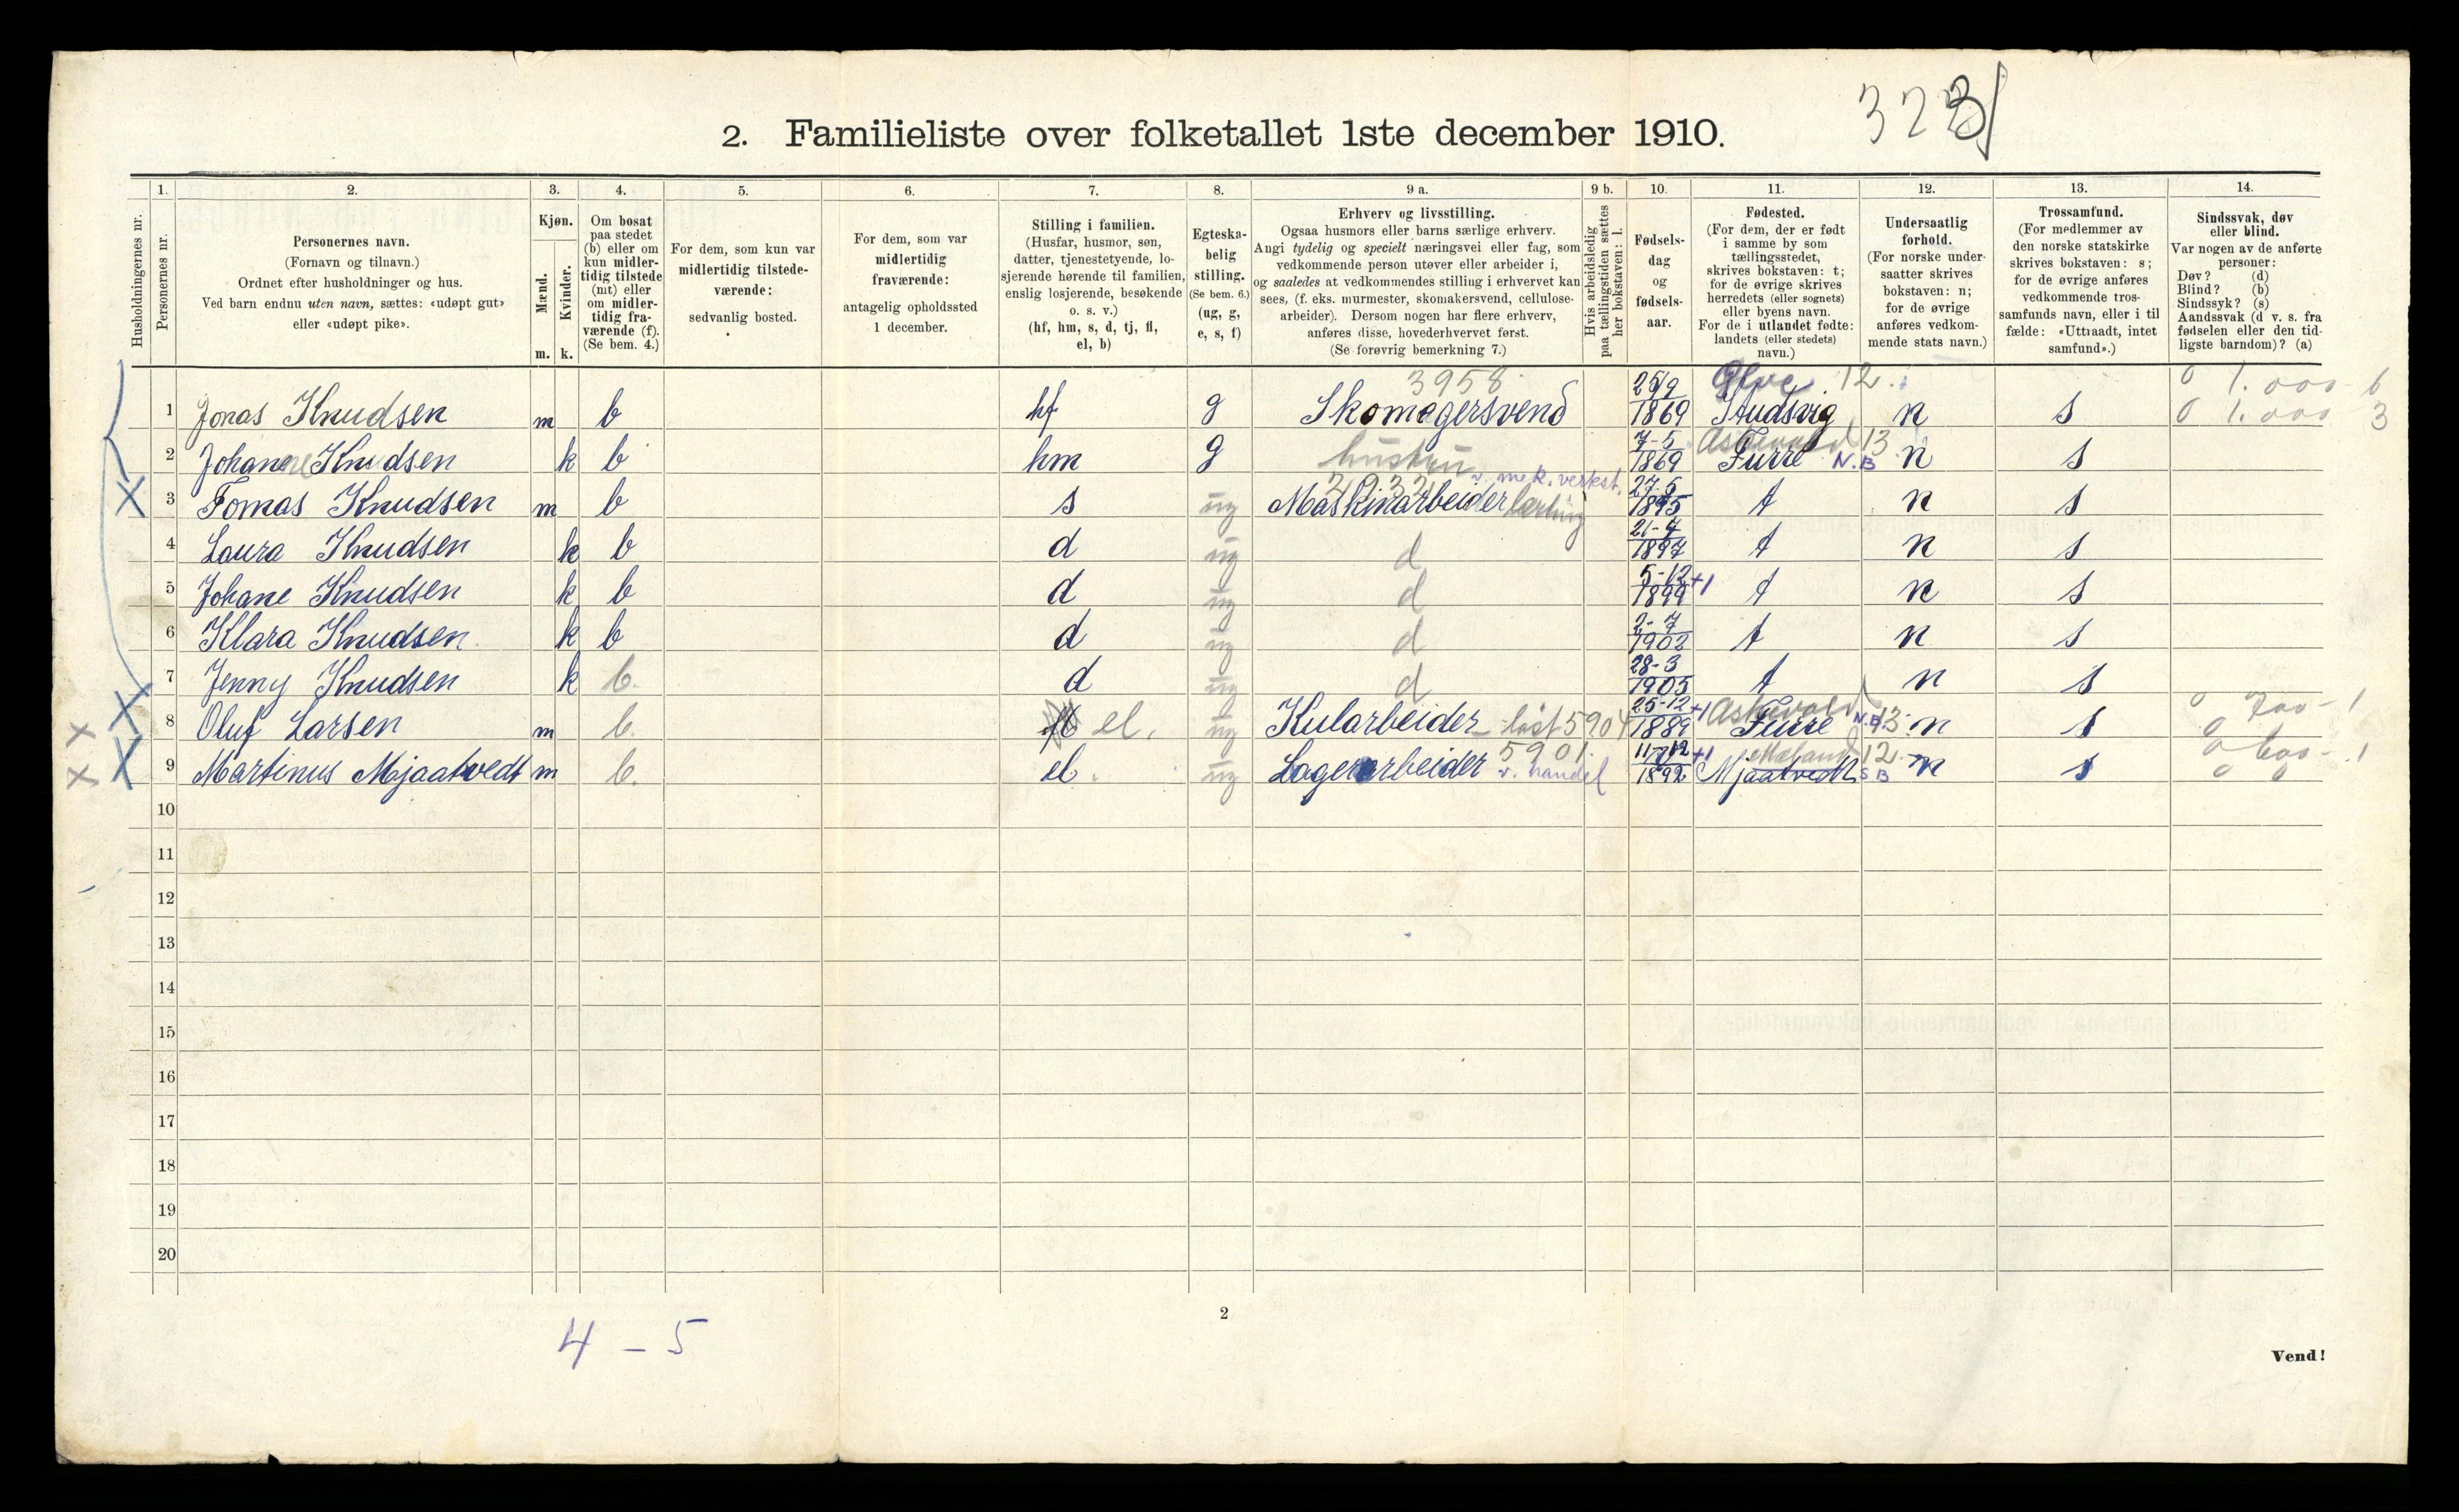 323
2. Familieliste over folketallet 1ste december 1910.
Husholdningernes nr.
1. Personernes nr.
2. Personernes navn. (Fornavn og tilnavn.) Ordnet efter husholdninger og hus. Ved barn endnu uten navn, sættes: «udøpt gut» eller «udøpt pike».
3. Kjøn. Mænd. m. Kvinder. k.
4. Om bosat paa stedet (b) eller om kun midlertidig tilstede (mt) eller om midlertidig fraværende (f). (Se bem. 4.)
5. For dem, som kun var midlertidig tilstedeværende: sedvanlig bosted.
6. For dem, som var midlertidig fraværende: antagelig opholdssted 1 december.
7. Stilling i familien. (Husfar, husmor, søn, datter, tjenestetyende, losjerende hørende til familien, enslig losjerende, besøkende o. s. v.) (hf, hm, s, d, tj, fl, el, b)
8. Egteskabelig stilling. (Se bem. 6.) (ug, g, e, s, f)
9 a. Erhverv og livsstilling. Ogsaa husmors eller barns særlige erhverv. Angi tydelig og specielt næringsvei eller fag, som vedkommende person utøver eller arbeider i, og saaledes at vedkommendes stilling i erhvervet kan sees, (f. eks. murmester, skomakersvend, cellulosearbeider). Dersom nogen har flere erhverv, anføres disse, hovederhvervet først. (Se forøvrig bemerkning 7.)
9 b. Hvis arbeidsledig paa tællingstiden sættes her bokstaven: l.
10. Fødselsdag og fødselsaar.
11. Fødested. (For dem, der er født i samme by som tællingsstedet, skrives bokstaven: t; for de øvrige skrives herredets (eller sognets) eller byens navn. For de i utlandet fødte: landets (eller stedets) navn.)
12. Undersaatlig forhold. (For norske undersaatter skrives bokstaven: n; for de øvrige anføres vedkommende stats navn.)
13. Trossamfund. (For medlemmer av den norske statskirke skrives bokstaven: s; for de øvrige anføres vedkommende trossamfunds navn, eller i tilfælde: «Uttraadt, intet samfund».)
14. Sindssvak, døv eller blind. Var nogen av de anførte personer: Døv? (d) Blind? (b) Sindssyk? (s) Aandssvak (d v. s. fra fødselen eller den tidligste barndom)? (a)
3958 12. 0 1.000 6
1 Jonas Knudsen m b hf g Skomagersvend 25/9 1869 Studsvig n s 0 1.000 3
Askevold 13
2 Johanne Knudsen k b hm g hustru 7-5 1869 Furre N.B n s
2932 v. mek. verkst.
3 Tomas Knudsen m b s ug Maskinarbeider lærling 27-5 1895 t n s
4 Laura Knudsen k b d ug d 21-7 1897 t n s
5 Johane Knudsen k b d ug d 5-12 1899 +1 t n s
6 Klara Knudsen k b d ug d 2-7 1902 t n s
7 Jenny Knudsen k b. d ug d 28-3 1905 t n s
Askevold 0 700 - 1
8 Oluf Larsen m b. el. ug Kularbeider - løst 5904 25-12 1889 +1 Furre N.B. 13. n s 0
5901. 12. 0 600 - 1
9 Martinus Mjaatvedt m b. el. ug Lagerarbeider v. handel 11-12 1892 +1 Mjaatvedt S B n s 0 0
10
11
12
13
14
15
16
17
18
19
20
2
4 - 5
Vend!